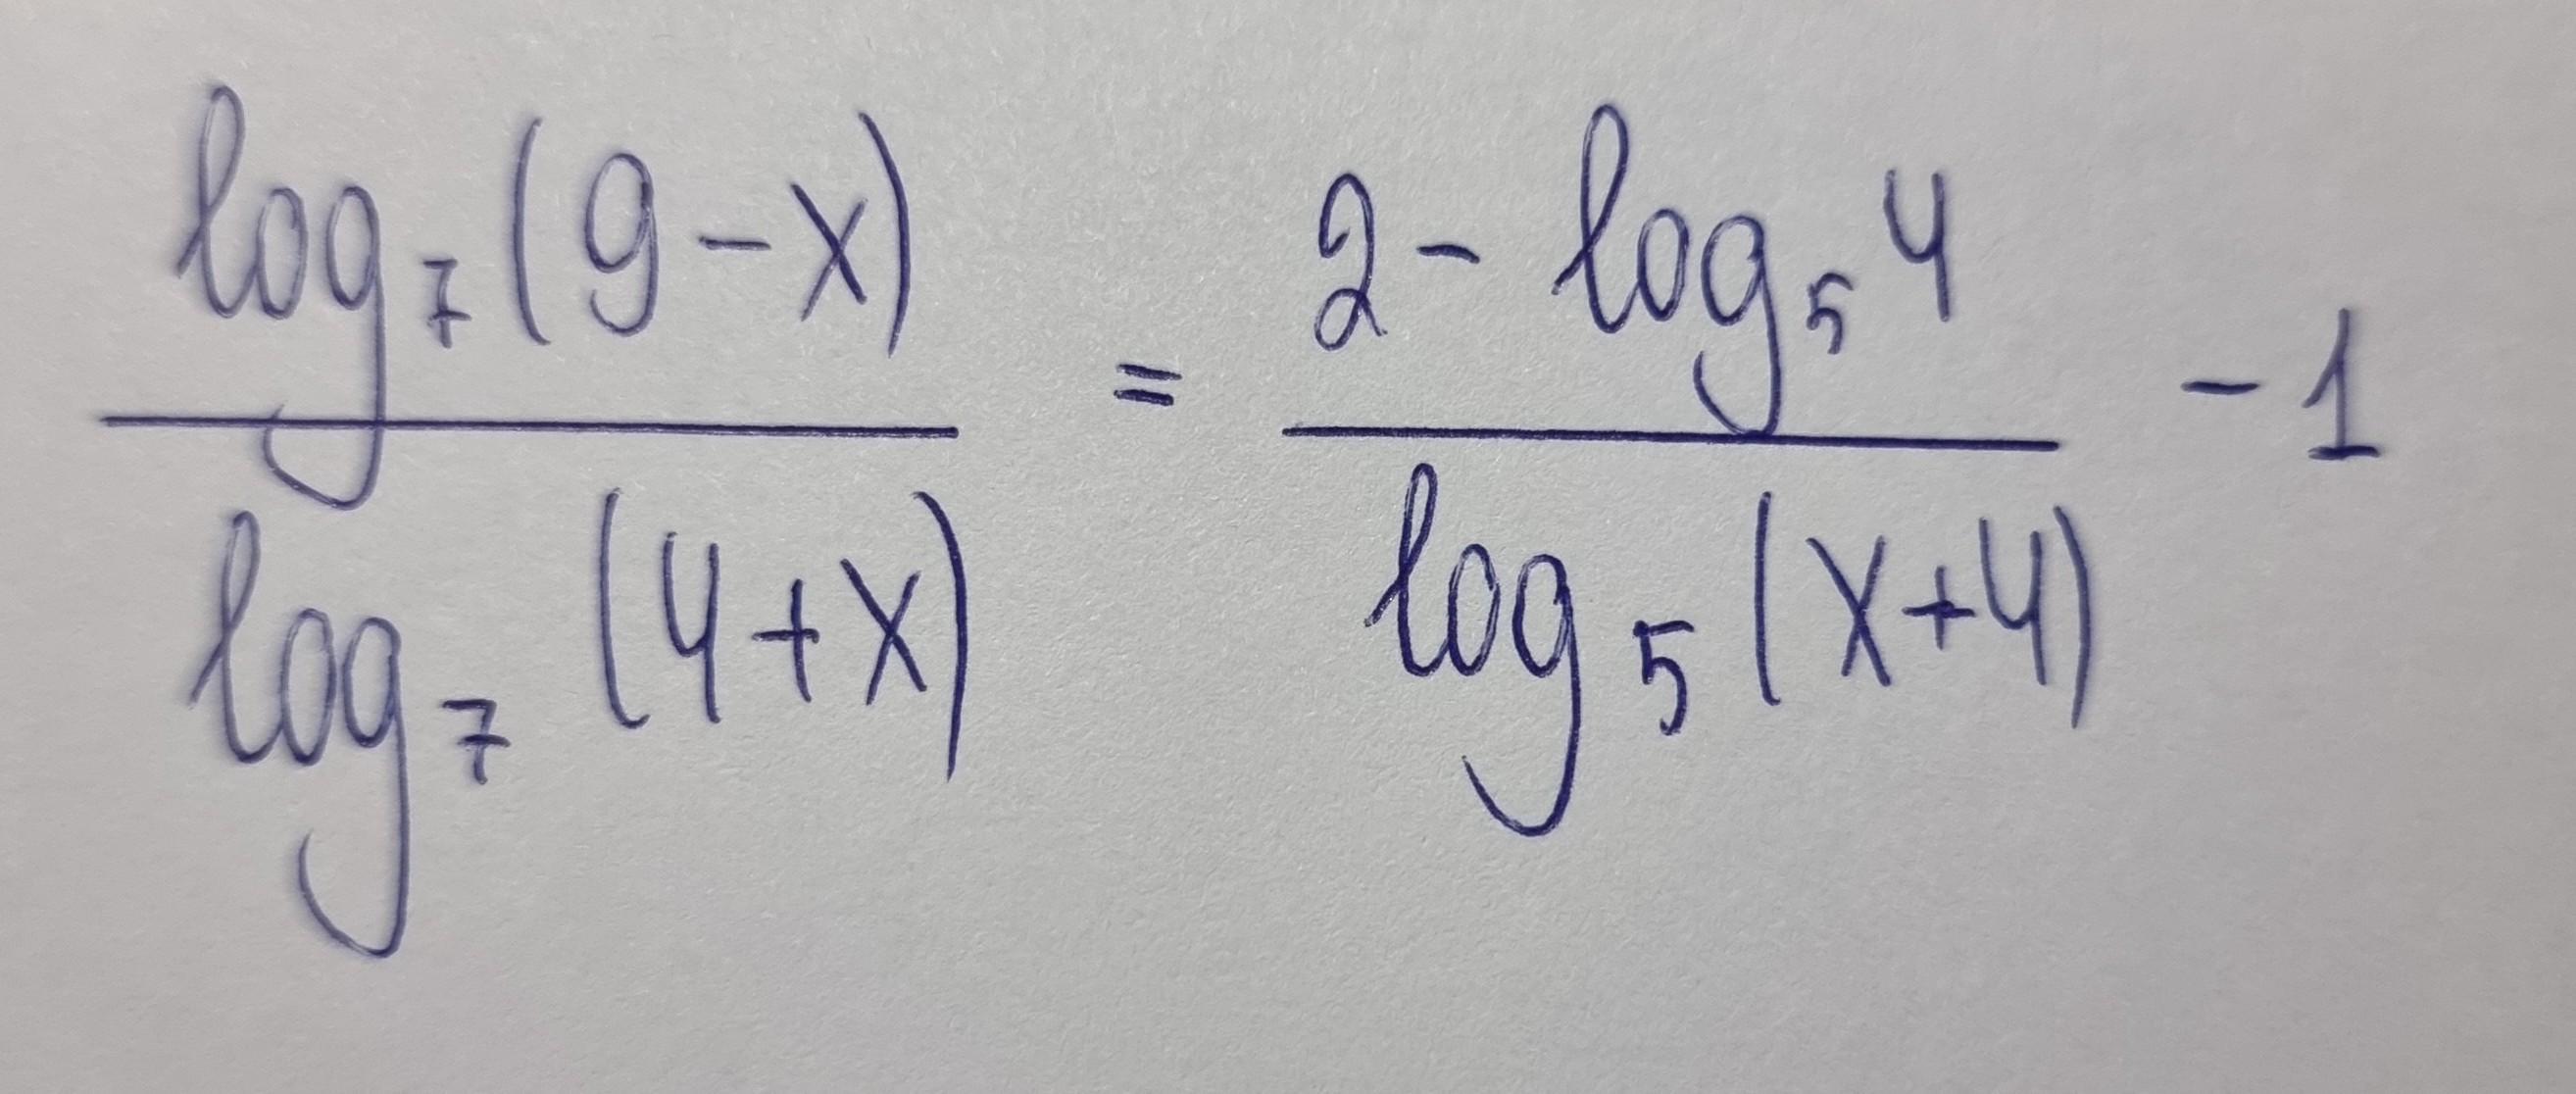 log₇(9-x) / log₇(4+x) = (2 - log₅4) / log₅(x+4) - 1